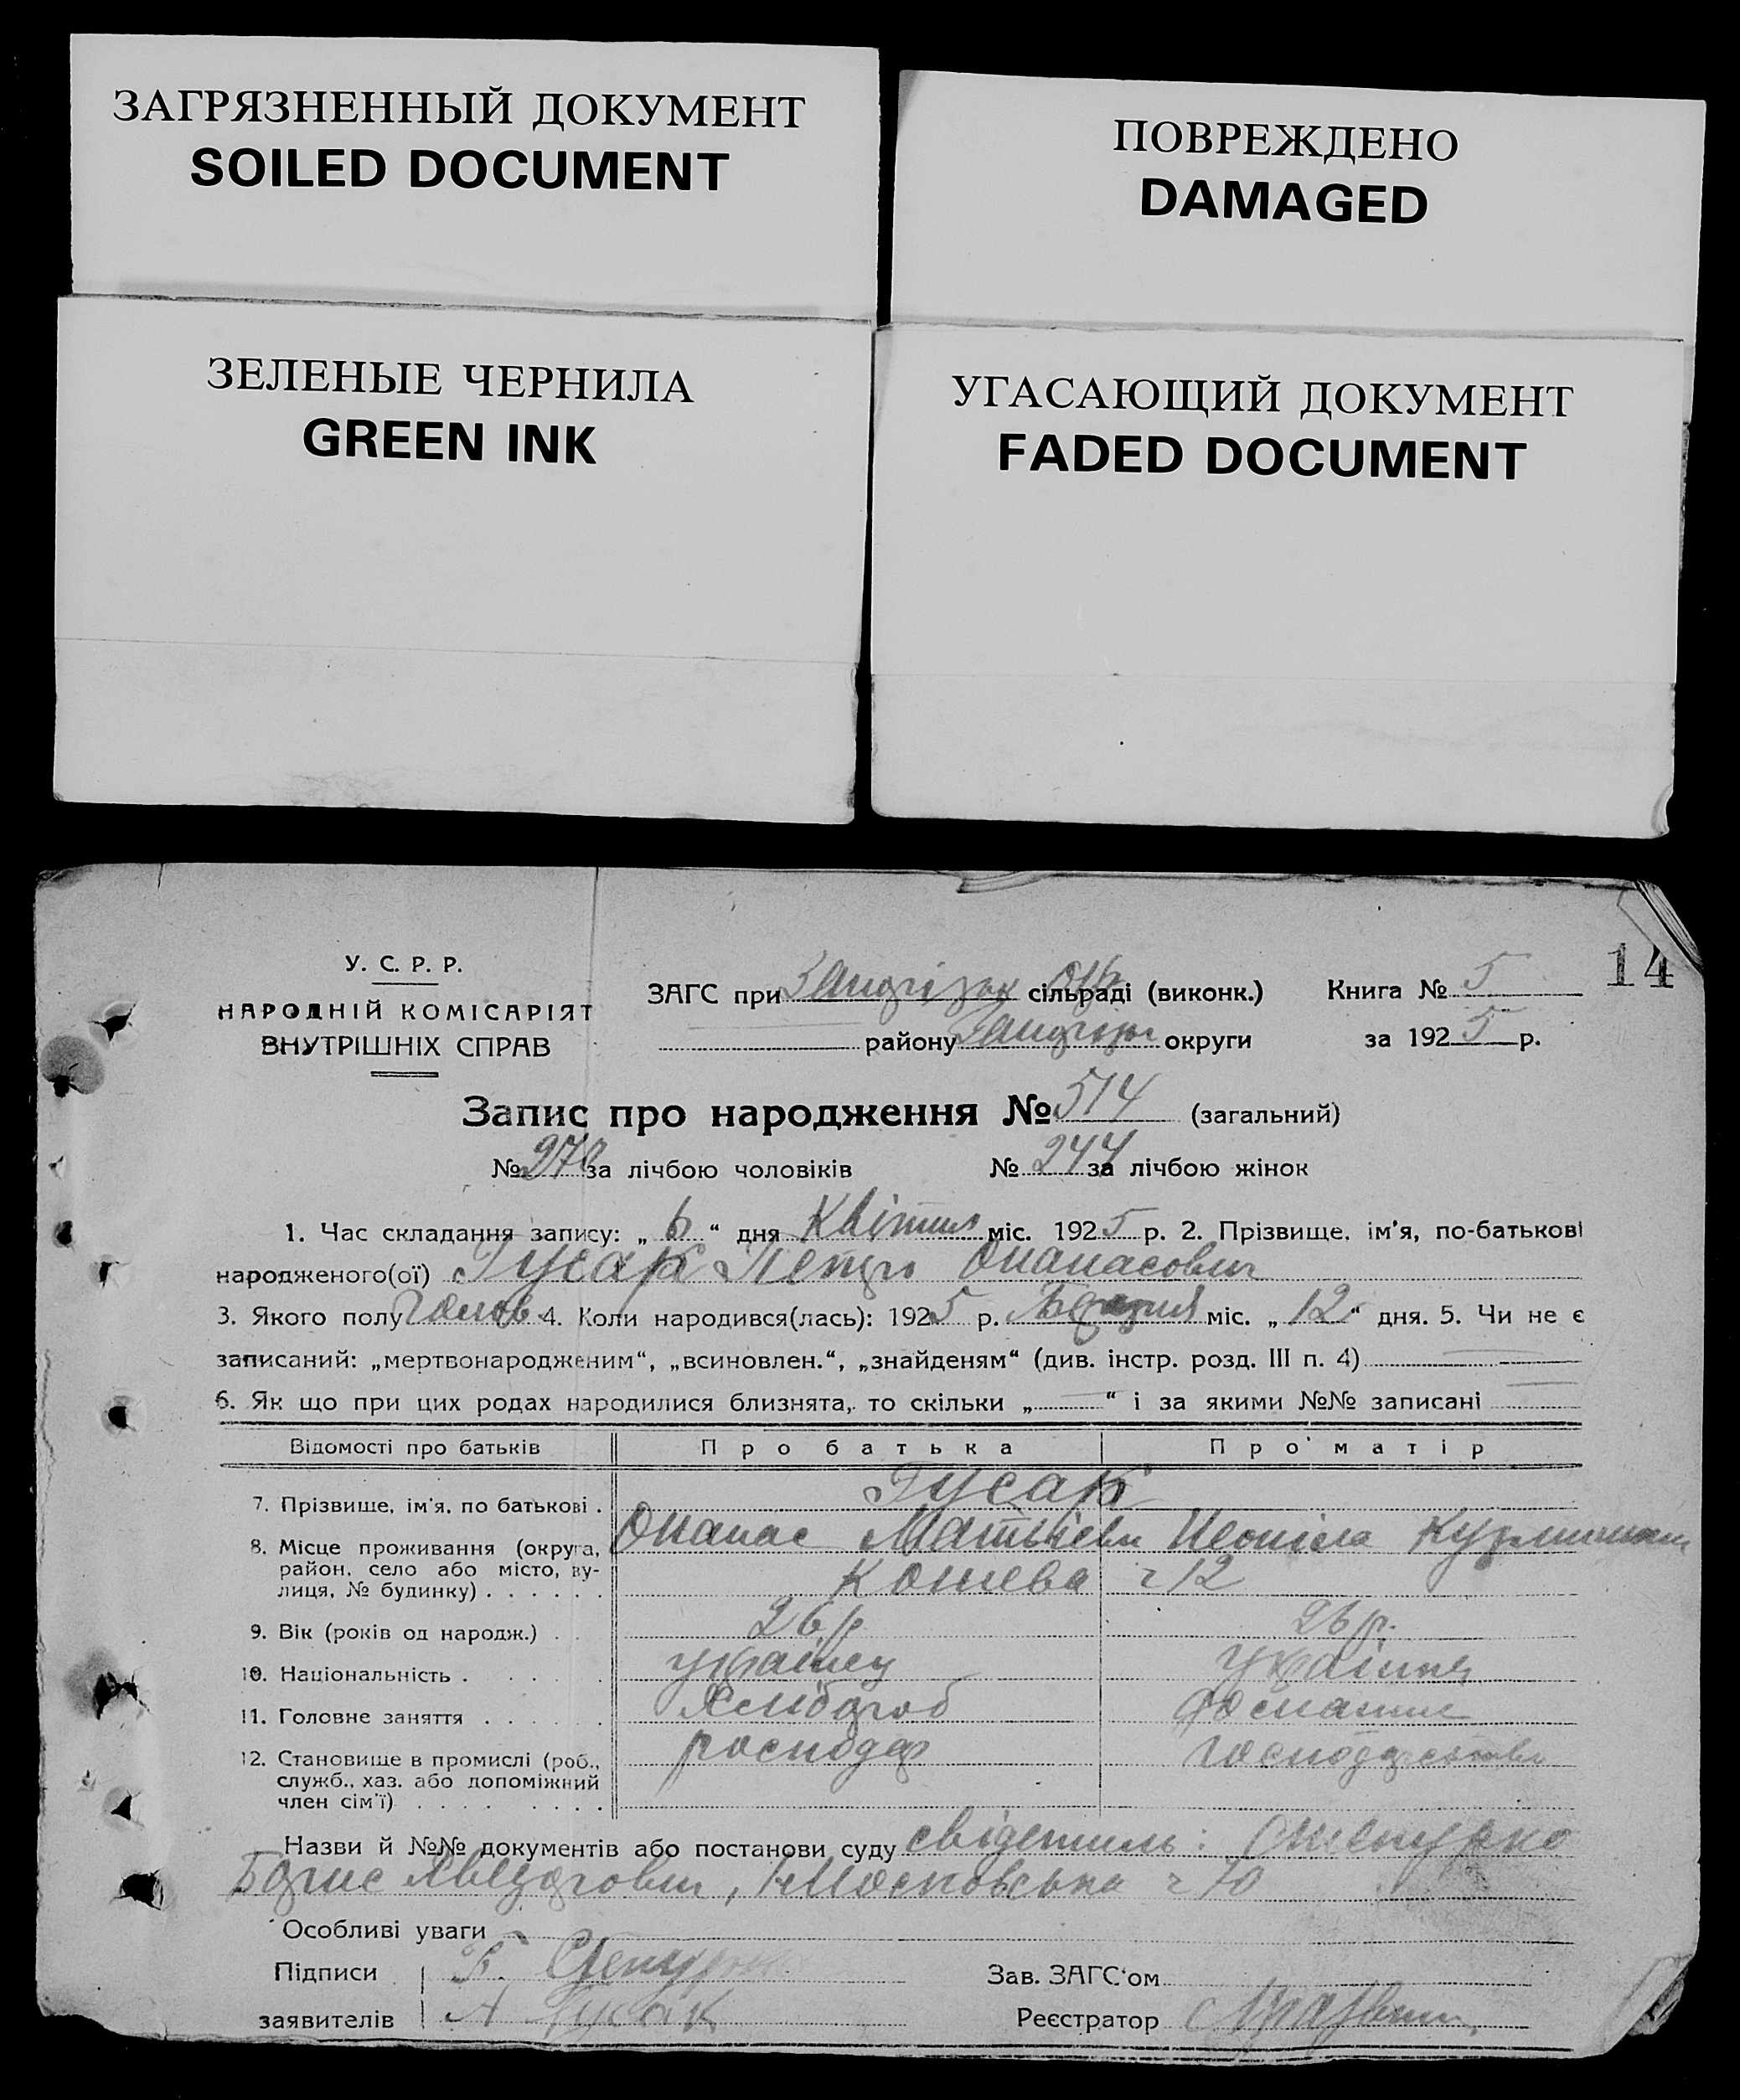 ЗАГРЯЗНЕННЫЙ ДОКУМЕНТ
SOILED DOCUMENT
ПОВРЕЖДЕНО
DAMAGED
ЗЕЛЕНЫЕ ЧЕРНИЛА
GREEN INK
УГАСАЮЩИЙ ДОКУМЕНТ
FADED DOCUMENT
14
У. С. Р. Р.
НАРОДНІЙ КОМІСАРІЯТ
ВНУТРІШНІХ СПРАВ
ЗАГС при сільраді (виконк.) Книга № 5
району округи за 1925 р.
Запис про народження № 514 (загальний)
№ 270 за лічбою чоловіків № 244 за лічбою жінок
1. Час складання запису: „ 6 “ дня Квітня міс. 1925 р. 2. Прізвище, ім'я, по-батькові
народженого(ої) Гусак Петро Опанасович
3. Якого полу чолов 4. Коли народився(лась): 1925 р. Березня міс. „ 12 “ дня. 5. Чи не є
записаний: „мертвонародженим“, „всиновлен.“, „знайденям“ (див. інстр. розд. III п. 4)
6. Як що при цих родах народилися близнята, то скільки „ “ і за якими №№ записані
Відомості про батьків Про батька Про матір
7. Прізвище, ім'я, по батькові . Гусак
Опанас
8. Місце проживання (округа, район, село або місто, вулиця, № будинку) . . . . . . ч 12
9. Вік (років од народж.) . . 26 р 26 р.
10. Національність . українец
11. Головне заняття . . . . . Хлібороб домашне
12. Становище в промислі (роб., служб., хаз. або допоміжний член сім'ї) . . . . . . . . господар господарство
Назви й №№ документів або постанови суду свідетиль:
Борис , ч 70
Особливі уваги
Підписи Зав. ЗАГС'ом
заявителів А Гусак Реєстратор